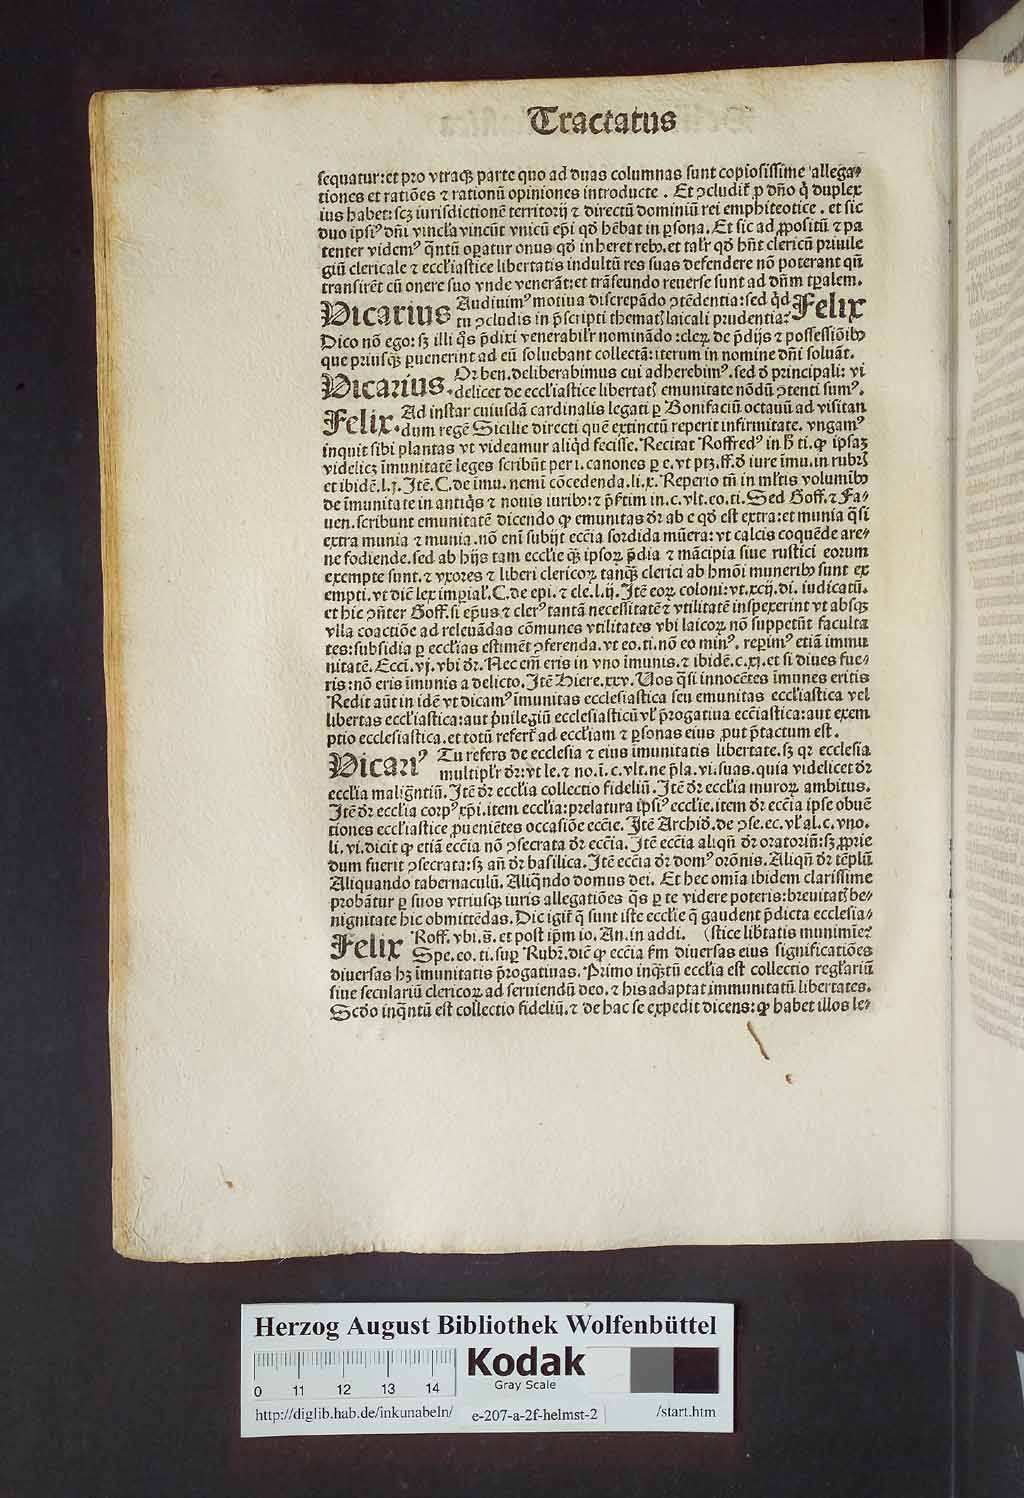 Tractatus
sequatur:et pro vtraqꝫ parte quo ad duas columnas sunt copiosissime allega⸗
tiones et ratiões ⁊ rationũ opiniones introducte . Et ꝯcludit̃ ꝑ dño ꝙ̃ duplex
ius habet: scꝫ iurisdictionẽ territorij ⁊ directũ dominiũ rei emphiteotice . et sic
duo ipsiꝰ dñi vincl'a vincũt vnicũ ep̃i qð hẽbat in ꝑsona. Et sic ad ꝓpositũ ⁊ pa
tenter videmꝰ q̃ntũ oꝑatur onus qð inheret rebꝫ. et tal'r qð hñt clericũ priuile
giũ clericale ⁊ eccl'iastice libertatis indultũ res suas defendere nõ poterant qñ
transirẽt cũ onere suo vnde venerãt: et trãseundo reuerse sunt ad dñm tꝑalem.
Vicarius Audiuimꝰ motiua discrepãdo ꝯtẽdentia: sed q̃d Felix
tu ꝯcludis in p̃scripti thematꝭ laicali prudentia?
Dico nõ ego: sꝫ illi q̃s p̃dixi venerabilr̃ nominãdo :cleꝝ de p̃dijs ⁊ possessiõibꝫ
que priusqꝫ ꝑuenerint ad eũ soluebant collectã: iterum in nomine dñi soluãt.
Vicarius. Or ben. deliberabimus cui adherebimꝰ. sed ð principali: vi
delicet de eccl'iastice libertatꝭ emunitate nõdũ ꝯtenti sumꝰ.
Felix. Ad instar cuiusdã cardinalis legati ꝑ Bonifaciũ octauũ ad visitan
dum regẽ Sicilie directi quẽ extinctũ reperit infirmitate. vngamꝰ
inquit sibi plantas vt videamur aliq̃d fecisse. Recitat Roffredꝰ in h̃ ti. ꝙ ipsaꝫ
videlicꝫ ĩmunitatẽ leges scribũt per i. canones ꝑ e. vt ptꝫ. ff. ð iure ĩmu. in rubꝝ
et ibidẽ. l. j. Jtẽ. C. de imu. nemĩ cõcedenda. li. x. Reperio tñ in ml'tis volumĩbꝫ
de ĩmunitate in antiq̃s ⁊ nouis iuribꝫ: ⁊ p̃ꝭtim in. c. vlt. eo. ti. Sed Goff. ⁊ Fa⸗
uen. scribunt emunitatẽ dicendo ꝙ emunitas dr̃ ab e qð est extra: et munia q̃si
extra munia ⁊ munia. nõ enĩ subijt eccĩa sordida mũera: vt calcis coquẽde are⸗
ne fodiende. sed ab hijs tam eccl'ie qꝫ ipsoꝝ p̃dia ⁊ mãcipia siue rustici eorum
exempte sunt. ⁊ vxores ⁊ liberi clericoꝝ tanqꝫ clerici ab hmõi muneribꝫ sunt ex
empti. vt diẽ lex imꝑial'. C. de epi. ⁊ cle. l. ij. Jtẽ eoꝝ coloni: vt. xcij. di. iudicatũ.
et hic ꝯñter Goff. si ep̃us ⁊ clerꝰ tantã necessitatẽ ⁊ vtilitatẽ inspexerint vt absqꝫ
vlla coactiõe ad releuãdas cõmunes vtilitates vbi laicoꝝ nõ suppetũt faculta
tes: subsidia ꝑ eccl'ias estimẽt ꝯferenda. vt eo. ti. nõ eo minꝰ. reꝑimꝰ etiã immu
nitatẽ. Ecci. vj. vbi dr̃. Nec em̃ eris in vno ĩmunis. ⁊ ibidẽ. c. xj. et si diues fue⸗
ris: nõ eris ĩmunis a delicto. Jtẽ Hiere. xxv. Vos q̃si innocẽtes ĩmunes eritis
Redit aũt in idẽ vt dicamꝰ ĩmunitas ecclesiastica seu emunitas eccl'iastica vel
libertas eccl'iastica: aut p̃uilegiũ ecclesiasticũ vl' p̃rogatiua eccĩastica: aut exem
ptio ecclesiastica. et totũ refert̃ ad eccl'iam ⁊ ꝑsonas eius ꝓut p̃tactum est.
Vicariꝰ Tu refers de ecclesia ⁊ eius imunitatis libertate. sꝫ qꝛ ecclesia
multipl'r dr̃: vt le. ⁊ no. ĩ. c. vlt. ne p̃la. vi. suas. quia videlicet dr̃
eccl'ia malignãtiũ. Jtẽ dr̃ eccl'ia collectio fideliũ. Jtẽ dr̃ eccl'ia muroꝝ ambitus.
Jtẽ dr̃ eccl'ia corpꝰ xp̃i. item eccl'ia: prelatura ipsiꝰ eccl'ie. item dr̃ eccĩa ipse obuẽ
tiones eccl'iastice ꝓueniẽtes occasiõe eccĩe. Jtẽ Archið. de ꝯse. ec. vl' al. c. vno.
li. vi. dicit ꝙ etiã eccĩa nõ ꝯsecrata dr̃ eccĩa. Jtẽ eccĩa aliqñ dr̃ oratoriũ: sꝫ ꝓprie
dum fuerit ꝯsecrata: sꝫ añ dr̃ basilica. Jtẽ eccĩa dr̃ domꝰ orõnis. Aliqñ dr̃ tẽplũ
Aliquando tabernaculũ. Aliq̃ndo domus dei. Et hec omĩa ibidem clarissime
probãtur ꝑ suos vtriusqꝫ iuris allegatiões q̃s ꝑ te videre poteris: breuitatꝭ be⸗
nignitate hic obmittẽdas. Dic igit̃ q̃ sunt iste eccl'ie q̃ gaudent p̃dicta ecclesia⸗
Felix Roff. vbi. s̃. et post ip̃m io. An. in addi. (stice lib̃tatis munimie?
Spe. eo. ti. suꝑ Rubr̃. dic̃ ꝙ eccĩa f̃m diuersas eius significatiões
diuersas hꝫ ĩmunitatis p̃rogatiuas. Primo inq̃ntũ eccl'ia est collectio regl'ariũ
siue seculariũ clericoꝝ ad seruiendũ deo. ⁊ his adaptat immunitatũ libertates.
Scðo inq̃ntũ est collectio fideliũ. ⁊ de hac se expedit dicens: ꝙ habet illos le⸗
Herzog August Bibliothek Wolfenbüttel
Kodak
Gray Scale
0 11 12 13 14
http://diglib.hab.de/inkunabeln/ e-207-a-2f-helmst-2 /start.htm